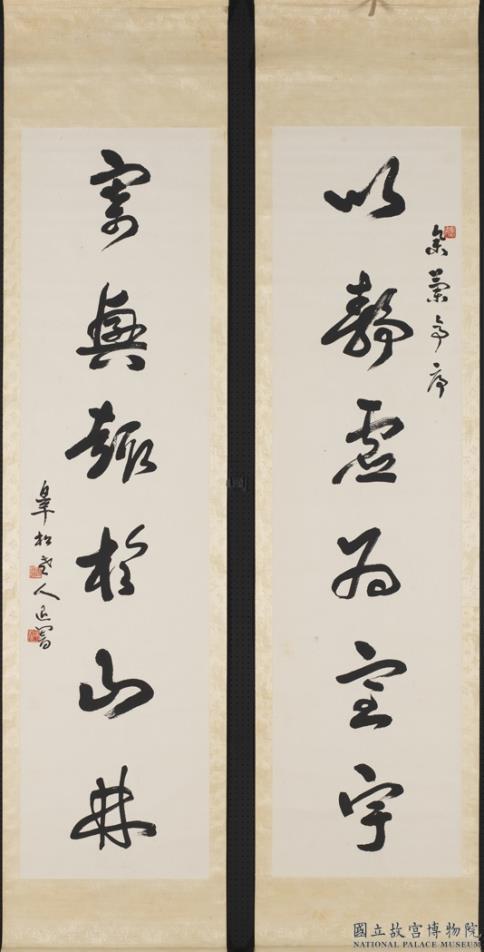 以靜虛為室宇
集蘭亭序
寄興趣於山林
松老人
國立故宮博物院
NATIONAL PALACE MUSEUM